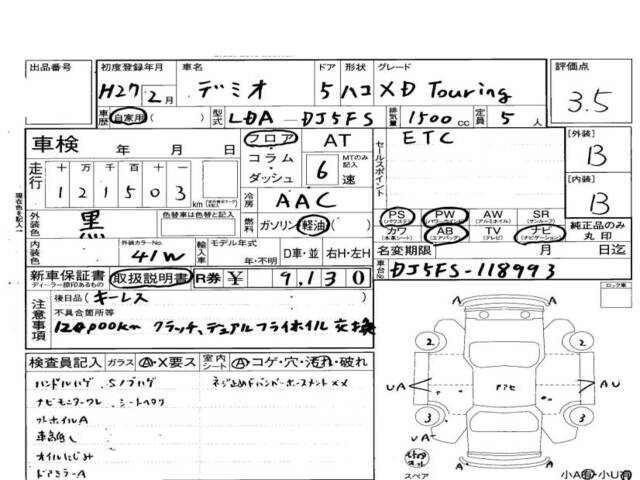 出品番号
初度登録年月 車名 ドア 形状 グレード 評価点
H27 2月 デミオ 5 ハコ XD Touring 3.5
車歴 自家用( ) 型式 LDA - DJ5FS 排気量 1500cc 定員 5人
車検 年 月 日 フロア AT
コラム・ダッシュ 6速 MTのみ記入
セールスポイント ETC
[外装] B
走行 十 万 千 百 十 一
121503 km
[内装] B
現在色を記入
冷房 AAC
外装色 黒 色替車は色替と記入
燃料 ガソリン 軽油 ( )
PS (パワステ) PW (パワーウインド) AW (アルミホイル) SR (サンルーフ)
カワ (本革シート) AB (エアバッグ) TV (テレビ) ナビ (ナビゲーション)
純正品のみ丸印
内装色 外装カラーNo. 41W 輸入車 モデル年式 年・不明 D車・並 右H・左H
名変期限 月 日迄
新車保証書 ディーラー捺印あるもの 取扱説明書 R券 ¥ 9,130
車台No. DJ5FS-118993
注意事項 後日品( キーレス )
不具合箇所等
クラッチ、デュアルフライホイル 交換
ロック車
検査員記入 ガラス A・X要ス 室内シート A・コゲ・穴・汚れ・破れ
ハンドルハゲ Sノブハゲ
ナビモニターワレ シートヘタリ
オイルにじみ
ドアミラーA
A A
2 2
UA AU
3 3
UA
A A
スペア
小A有・小U有